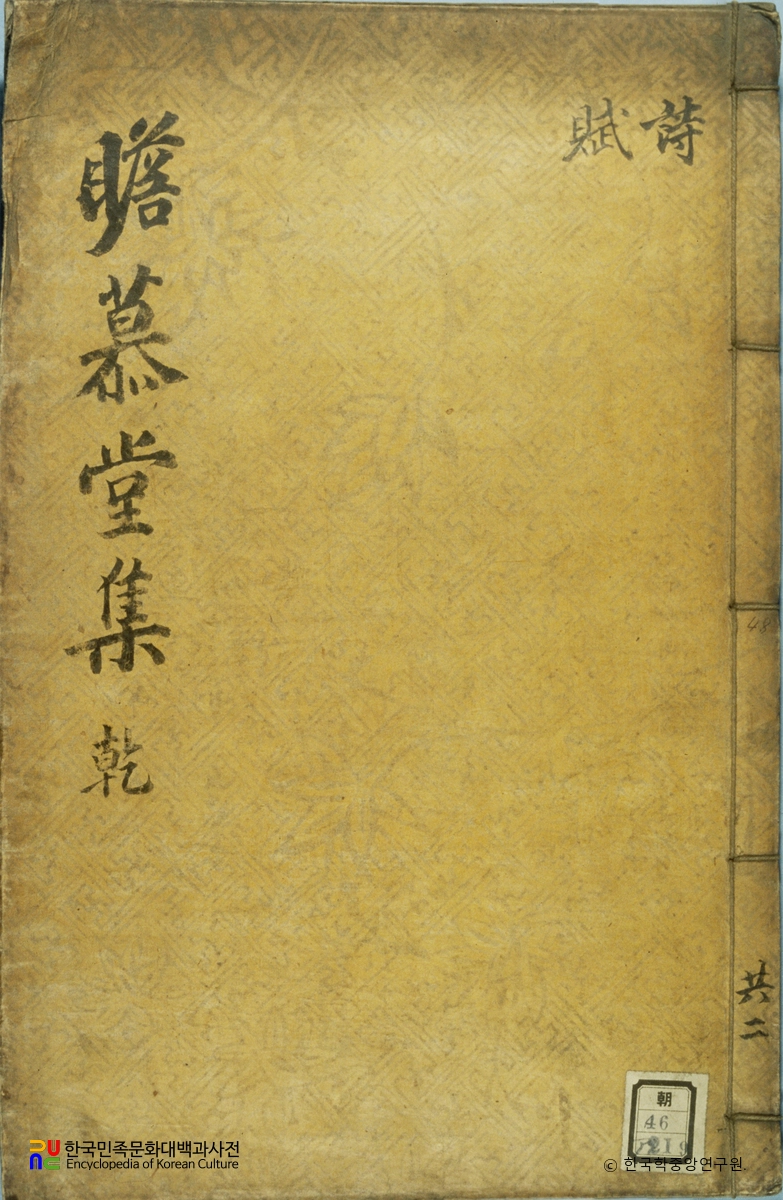 詩
賦
瞻慕堂集 乾
48
共二
朝
46
한국민족문화대백과사전
Encyclopedia of Korean Culture
ⓒ 한국학중앙연구원.